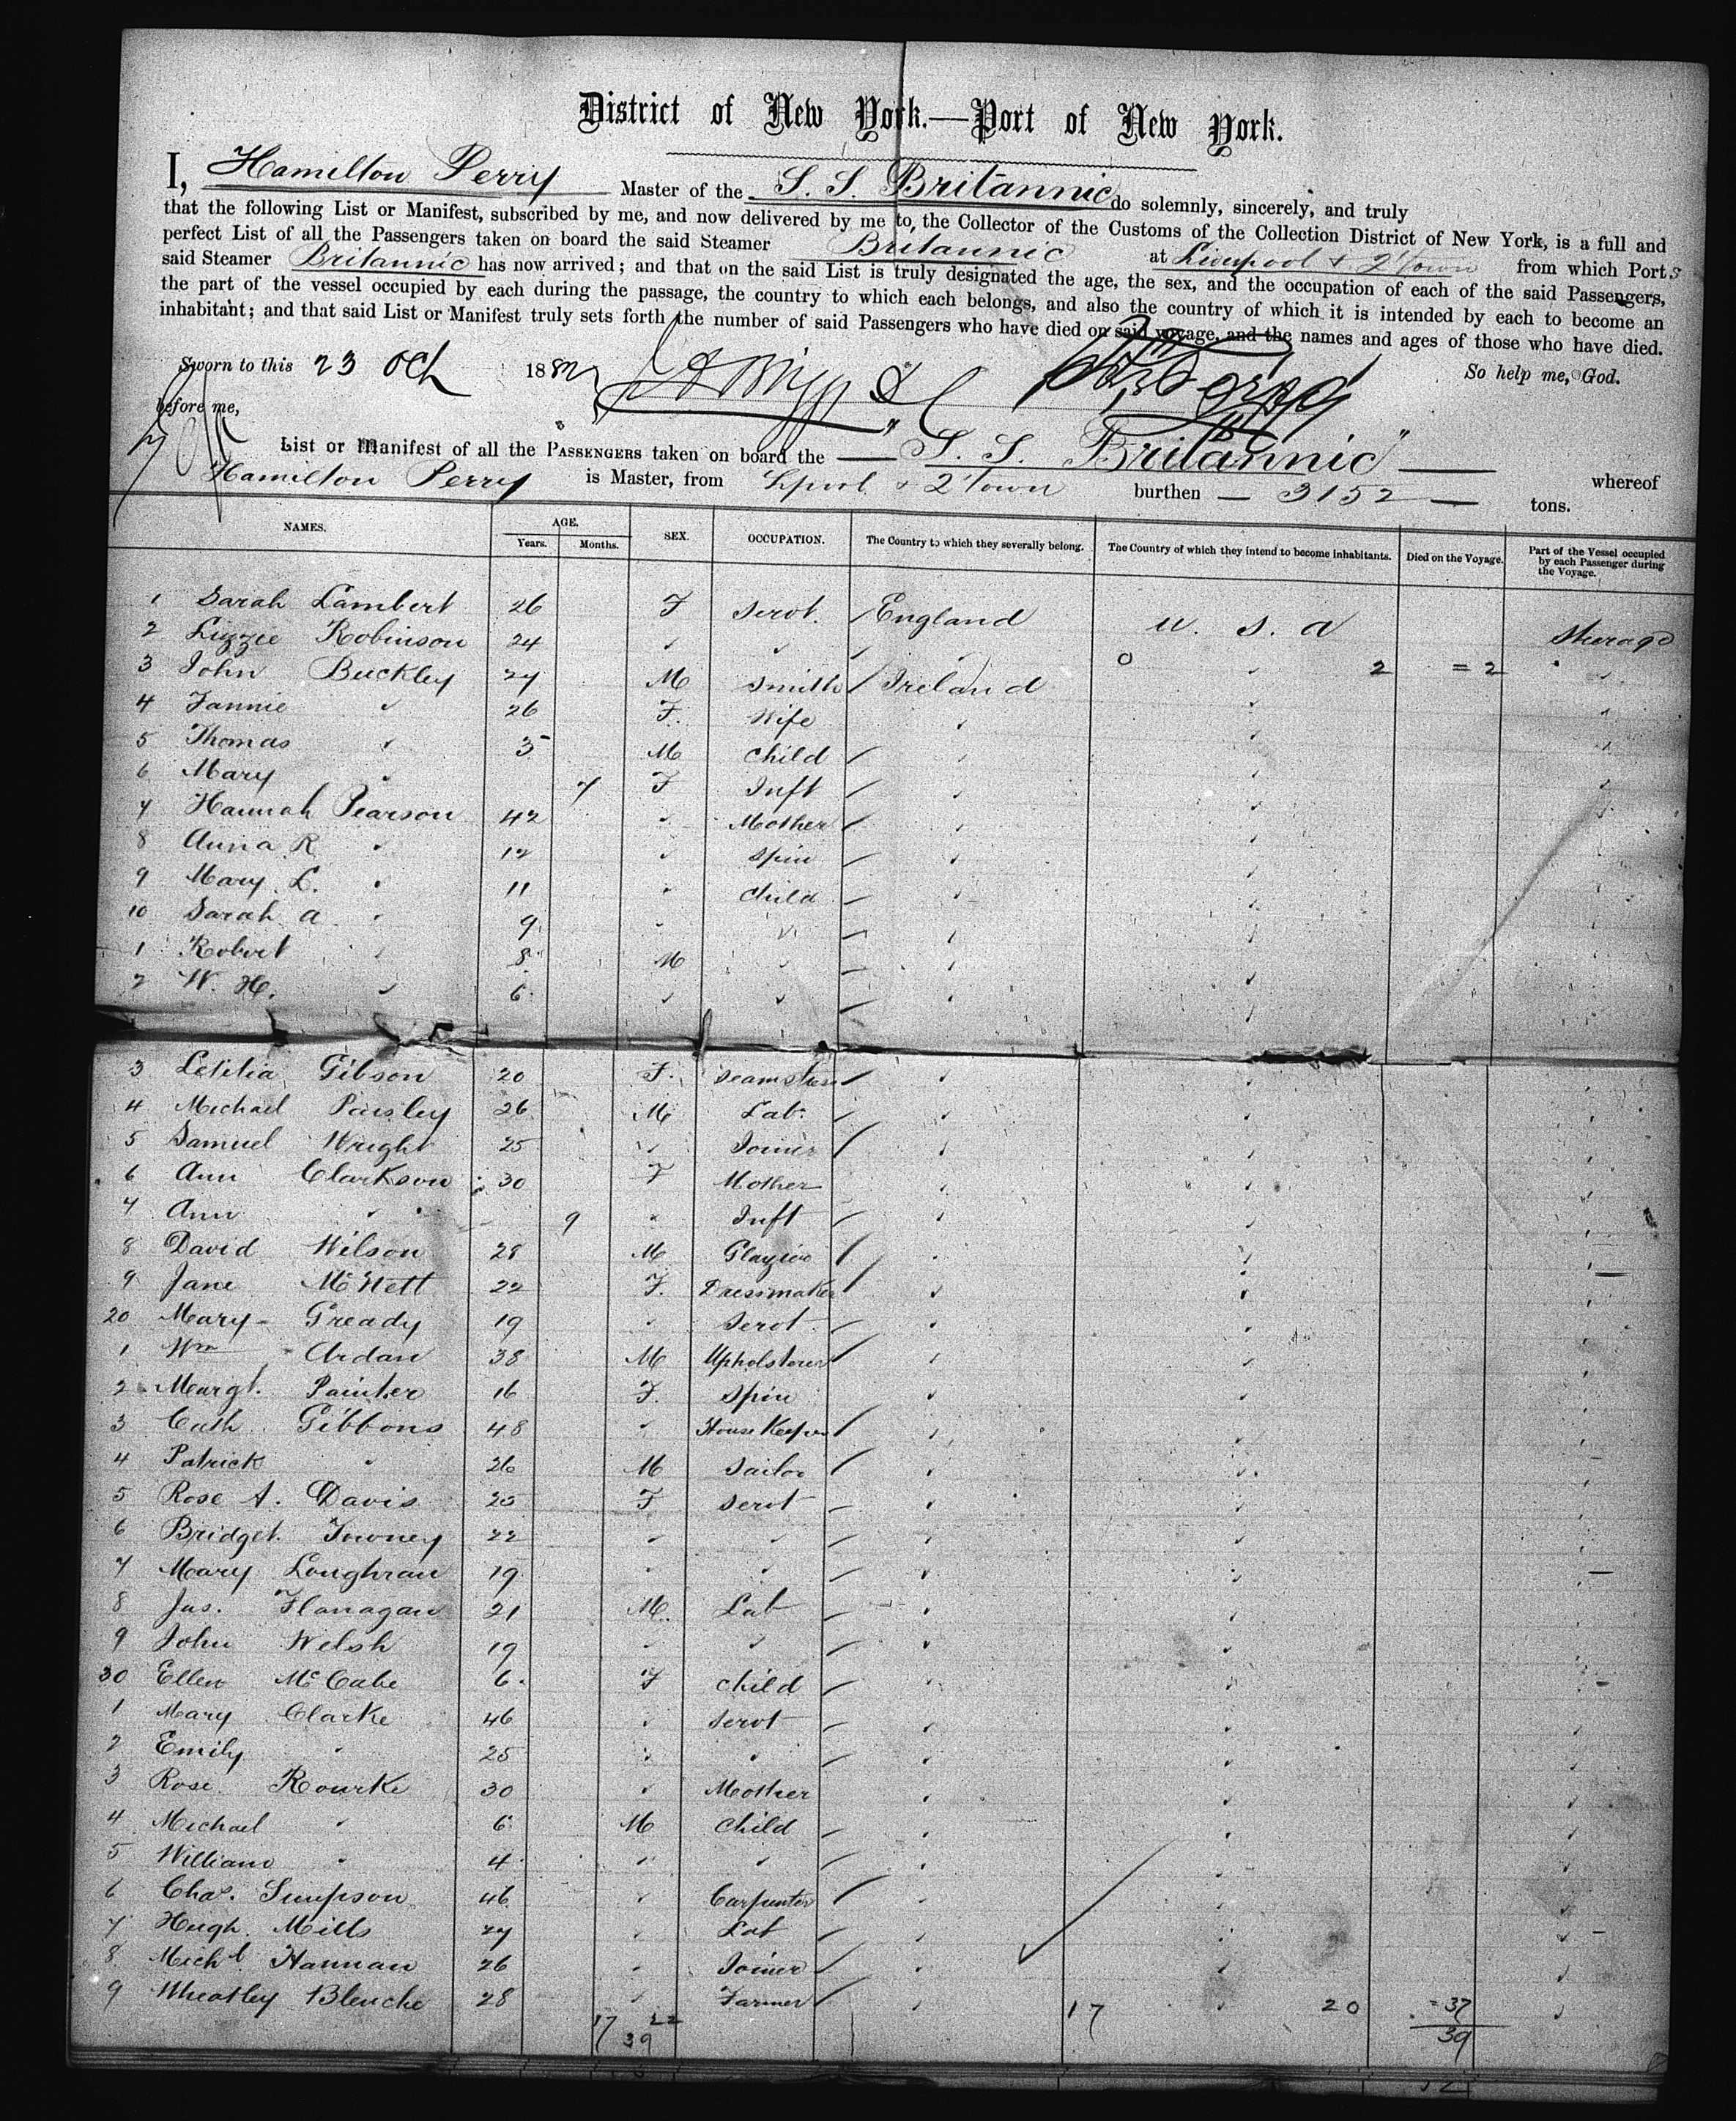 District of New York.—Port of New York.
I, Hamilton Perry Master of the S. S. Britannic do solemnly, sincerely, and truly
that the following List or Manifest, subscribed by me, and now delivered by me to, the Collector of the Customs of the Collection District of New York, is a full and
perfect List of all the Passengers taken on board the said Steamer Britannic at Liverpool & Q'town from which Ports
said Steamer Britannic has now arrived; and that on the said List is truly designated the age, the sex, and the occupation of each of the said Passengers,
the part of the vessel occupied by each during the passage, the country to which each belongs, and also the country of which it is intended by each to become an
inhabitant; and that said List or Manifest truly sets forth the number of said Passengers who have died on said voyage, and the names and ages of those who have died.
Sworn to this 23 Oct 1882 So help me, God.
before me,
List or Manifest of all the PASSENGERS taken on board the "S. S. Britannic" whereof
Hamilton Perry is Master, from Lpool & Q'town burthen 3152 tons.
NAMES. AGE. SEX. OCCUPATION. The Country to which they severally belong. The Country of which they intend to become inhabitants. Died on the Voyage. Part of the Vessel occupied by each Passenger during the Voyage.
Years. Months.
1 Sarah Lambert 26 F Servt. England U. S. A Steerage
2 Lizzie Robinson 24 " " " 0 " 2 = 2 "
3 John Buckley 27 M Smith Ireland " "
4 Fannie " 26 F. Wife " " "
5 Thomas " 3 M Child " " "
6 Mary " 7 F Inft " " "
7 Hannah Pearson 42 " Mother " " "
8 Anna R " 12 " Spin " " "
9 Mary L. " 11 " Child " " "
10 Sarah A " 9 " " " " "
1 Robert " 8 M " " " "
2 W. H. " 6 " " " " "
3 Letitia Gibson 20 F. Seamstress " " "
4 Michael Paisley 26 M Lab. " " "
5 Samuel Wright 25 " Joiner " " "
6 Ann Clarkson 30 F Mother " " "
7 Ann " 9 " Inft " " "
8 David Wilson 28 M Glazier " " "
9 Jane McNett 22 F. Dressmaker " " "
20 Mary Gready 19 " Servt " " "
1 Wm Ardan 38 M Upholsterer " " "
2 Margt. Painter 16 F. Spin " " "
3 Cath Gibbons 48 " House Keeper " " "
4 Patrick " 26 M Sailor " " "
5 Rose A. Davis 25 F Servt " " "
6 Bridget 22 " " " " "
7 Mary Loughran 19 " " " " "
8 Jas. Flanagan 21 M. Lab " " "
9 John Welsh 19 " " " " "
30 Ellen McCabe 6 F Child " " "
1 Mary Clarke 46 " Servt " " "
2 Emily " 25 " " " " "
3 Rose Rourke 30 " Mother " " "
4 Michael " 6 M Child " " "
5 William " 4 " " " " "
6 Chas. Simpson 46 " Carpenter " " "
7 Hugh Mills 27 " Lab " " "
8 Michl. Hannan 26 " Joiner " " "
9 Wheatley Blenche 28 " Farmer " 17 " 20 = 37 "
17 22 39
39